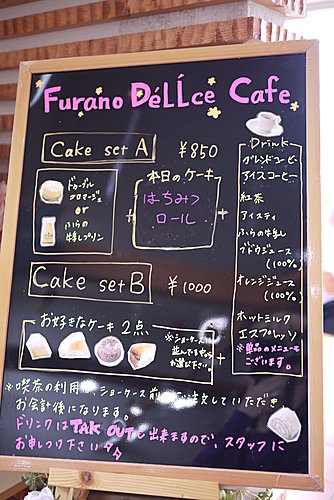 Furano DéLÍce Cafe
Cake set A ¥850
ドゥーブル
フロマージュ
or
ふらの
牛乳プリン
+
本日のケーキ
はちみつ
ロール
+
Cake set B ¥1000
お好きなケーキ 2点
※ショーケースに
お選び下さい
+
Drink
ブレンドコーヒー
アイスコーヒー
紅茶
アイスティ
ふらの牛乳
ブドウジュース
(100%)
オレンジジュース
(100%)
ホットミルク
エスプレッソ
※単品のメニューも
ございます。
※喫茶の利用は、ショーケース前にてご注文していただき
お会計後になります。
ドリンクはTAKE OUTも出来ますので、スタッフに
お申しつけ下さい